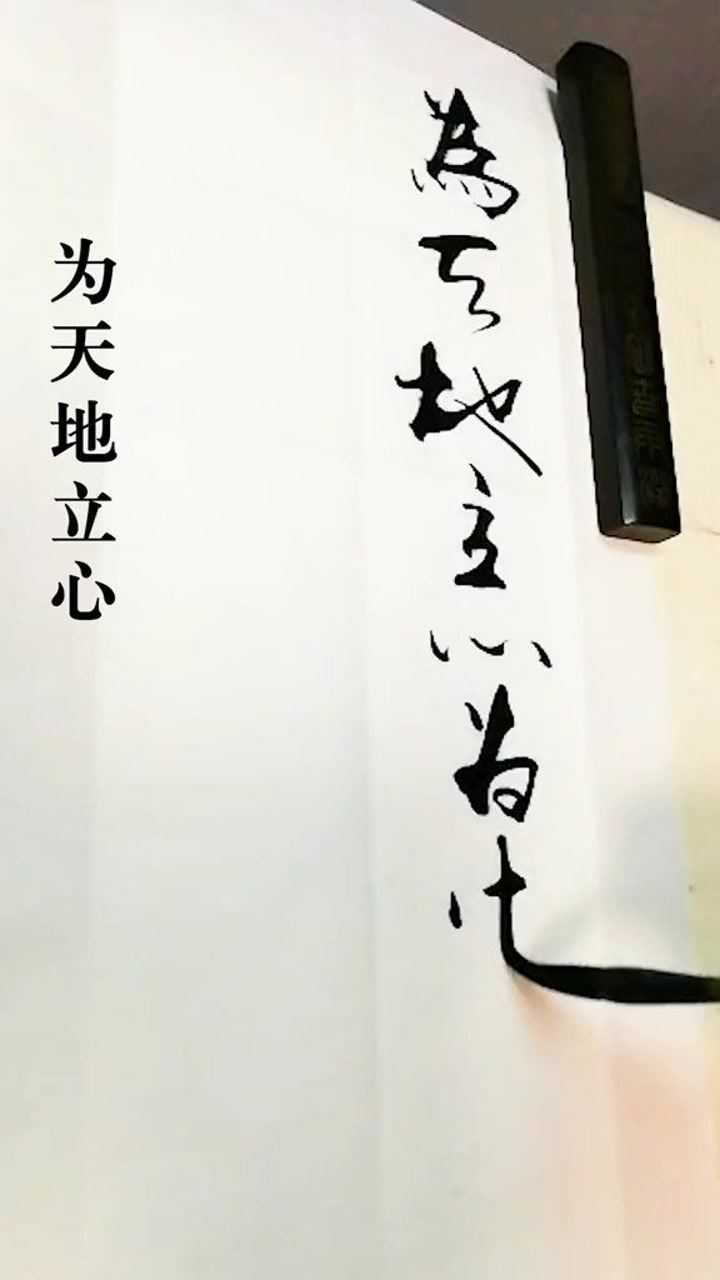 為天地立心为
为天地立心